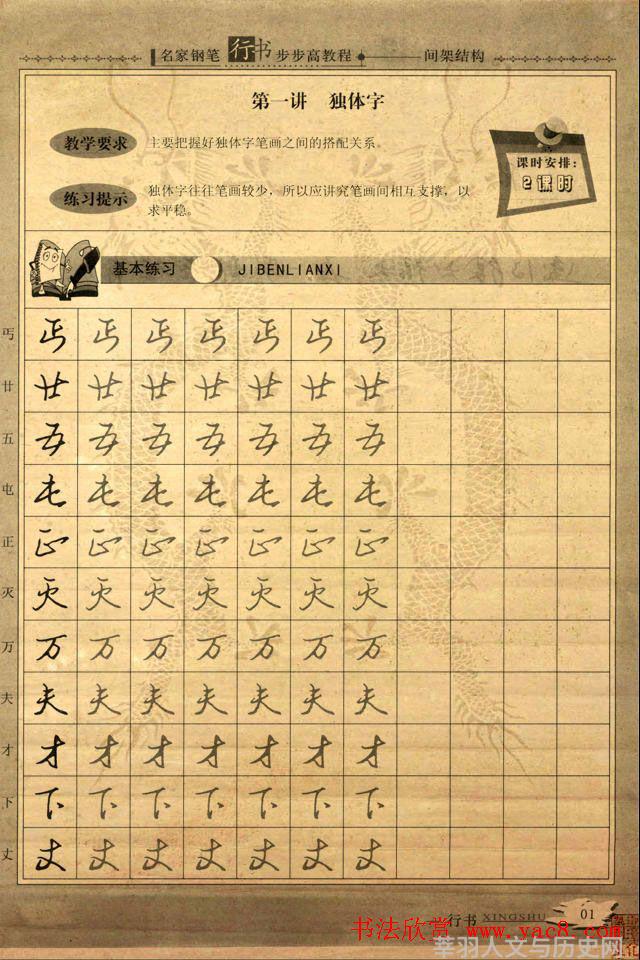 名家钢笔 行书 步步高教程 间架结构
第一讲 独体字
教学要求 主要把握好独体字笔画之间的搭配关系。
课时安排:
2课时
练习提示 独体字往往笔画较少，所以应讲究笔画间相互支撑，以
求平稳。
基本练习 JIBENLIANXI
丐 丐 丐 丐 丐 丐 丐 丐
廿 廿 廿 廿 廿 廿 廿 廿
五 五 五 五 五 五 五 五
屯 屯 屯 屯 屯 屯 屯 屯
正 正 正 正 正 正 正 正
灭 灭 灭 灭 灭 灭 灭 灭
万 万 万 万 万 万 万 万
夫 夫 夫 夫 夫 夫 夫 夫
才 才 才 才 才 才 才 才
下 下 下 下 下 下 下 下
丈 丈 丈 丈 丈 丈 丈 丈
行书 XINGSHU 01
书法欣赏 www.yac8.com
华羽人文与历史网